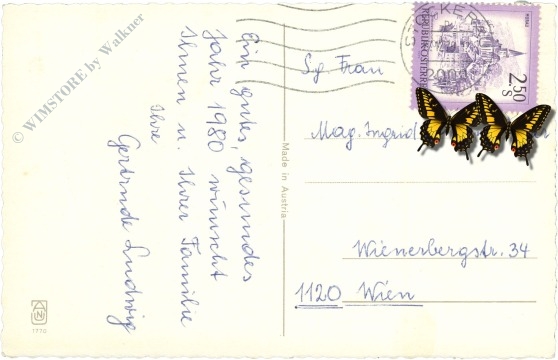 Ein gutes, gesundes
Jahr 1980 wünscht
Ihnen u. Ihrer Familie
Ihre
Gertrude Ludwig
Sg. Frau
Mag. Ingrid
Wienerbergstr. 34
1120 Wien
Made in Austria
REPUBLIK ÖSTERREICH
2.50
S
© WIMSTORE by Walkner
1770